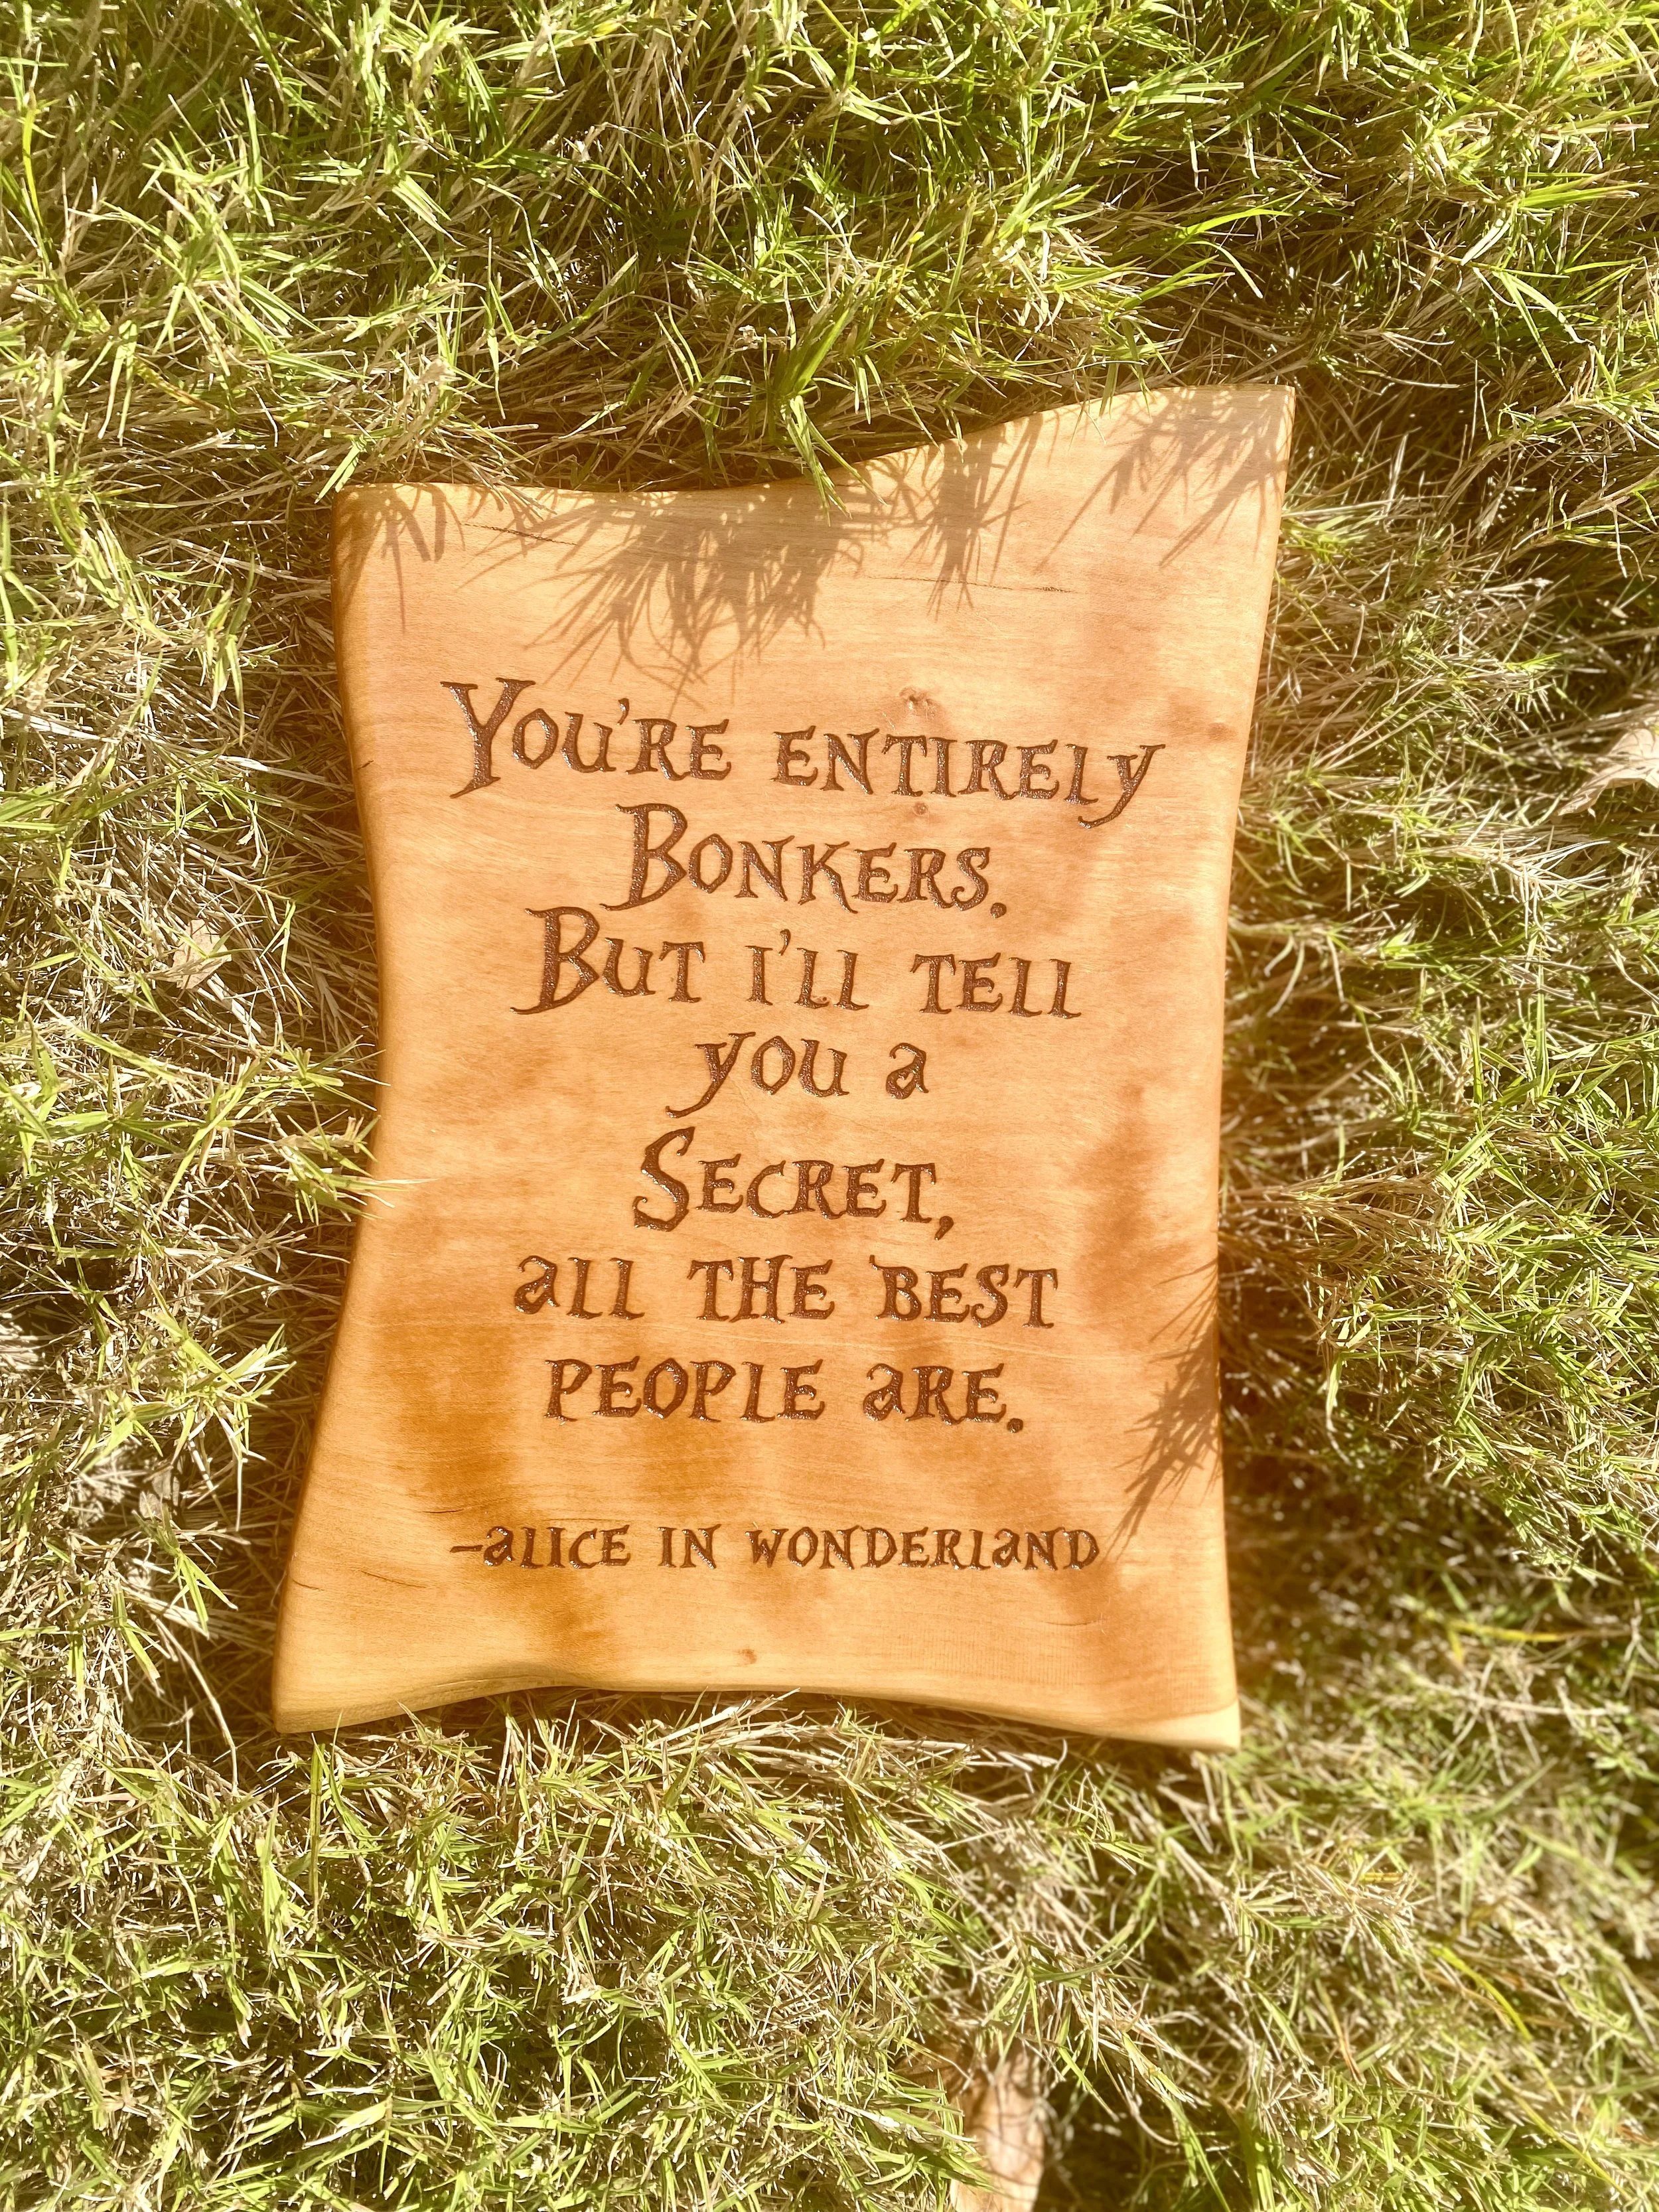 You're entirely
Bonkers.
But i'll tell
you a
Secret,
all the best
people are.
-alice in wonderland